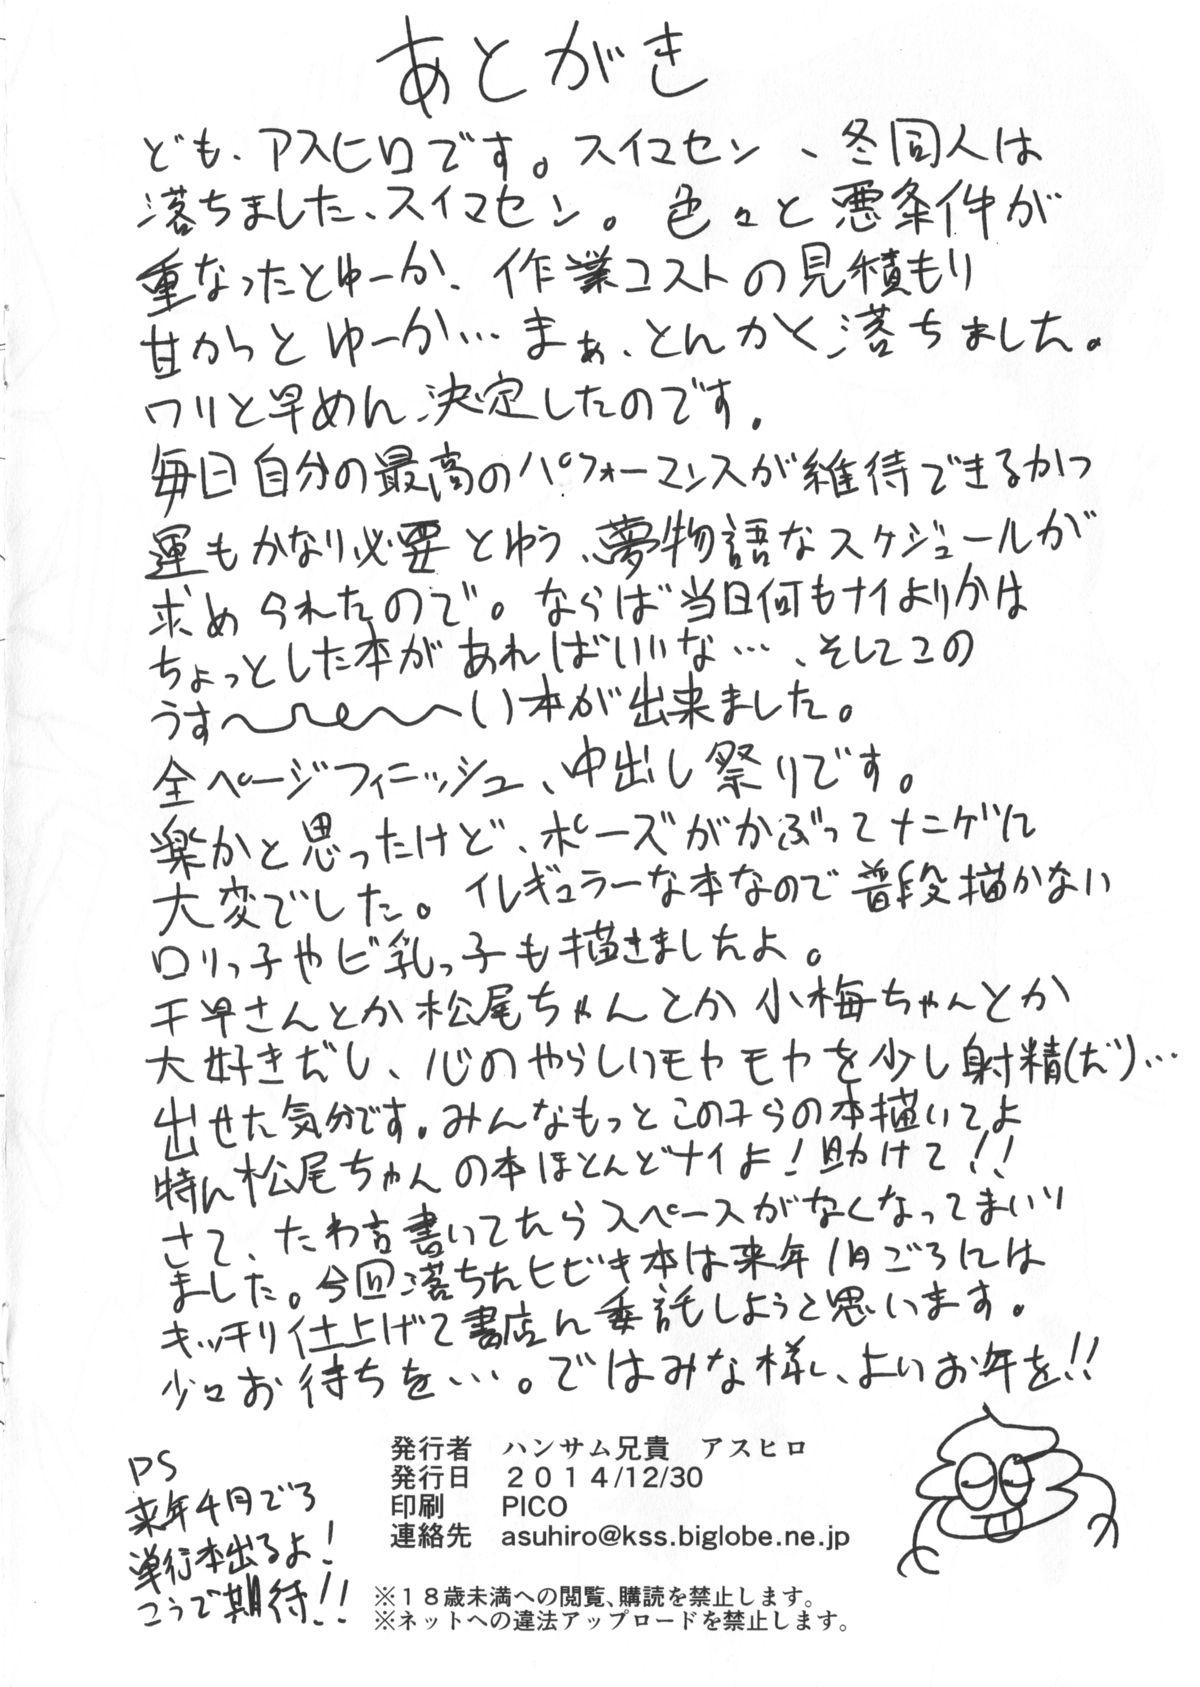 あとがき
ども、アスヒロです。スイマセン、冬同人は
落ちました、スイマセン。色々と悪条件が
重なったとゆーか、作業コストの見積もり
甘かっとゆーか…まぁ、とんかく落ちました。
ワリと早めん決定したのです。
毎日自分の最高のパフォーマンスが維待できるかつ
運もかなり必要とゆう、夢物語なスケジュールが
求められたので。ならば当日何もナイよりかは
ちょっとした本があればいいな…、そしてこの
うす〜い本が出来ました。
全ページフィニッシュ、中出し祭りです。
楽かと思ったけど、ポーズがかぶってナニゲに
大変でした。イレギュラーな本なので普段描かない
ロリっ子やビ乳っ子も描きましたよ。
千早さんとか松尾ちゃんとか小梅ちゃんとか
大好きだし、心のやらしいモヤモヤを少し射精(だ)…
出せた気分です。みんなもっとこの子らの本描いてよ
特ん松尾ちゃんの本ほとんどナイよ！助けて！！
さて、たわ言書いてたらスペースがなくなってまいり
ました。今回落ちたヒビキ本は来年1月ごろには
キッチリ仕上げて書店ん委託しようと思います。
少々お待ちを…。ではみな様、よいお年を！！
発行者　ハンサム兄貴　アスヒロ
発行日　２０１４/12/30
印刷　PICO
連絡先　asuhiro@kss.biglobe.ne.jp
PS
来年4月ごろ
単行本出るよ！
こうご期待！！
※１８歳未満への閲覧、購読を禁止します。
※ネットへの違法アップロードを禁止します。